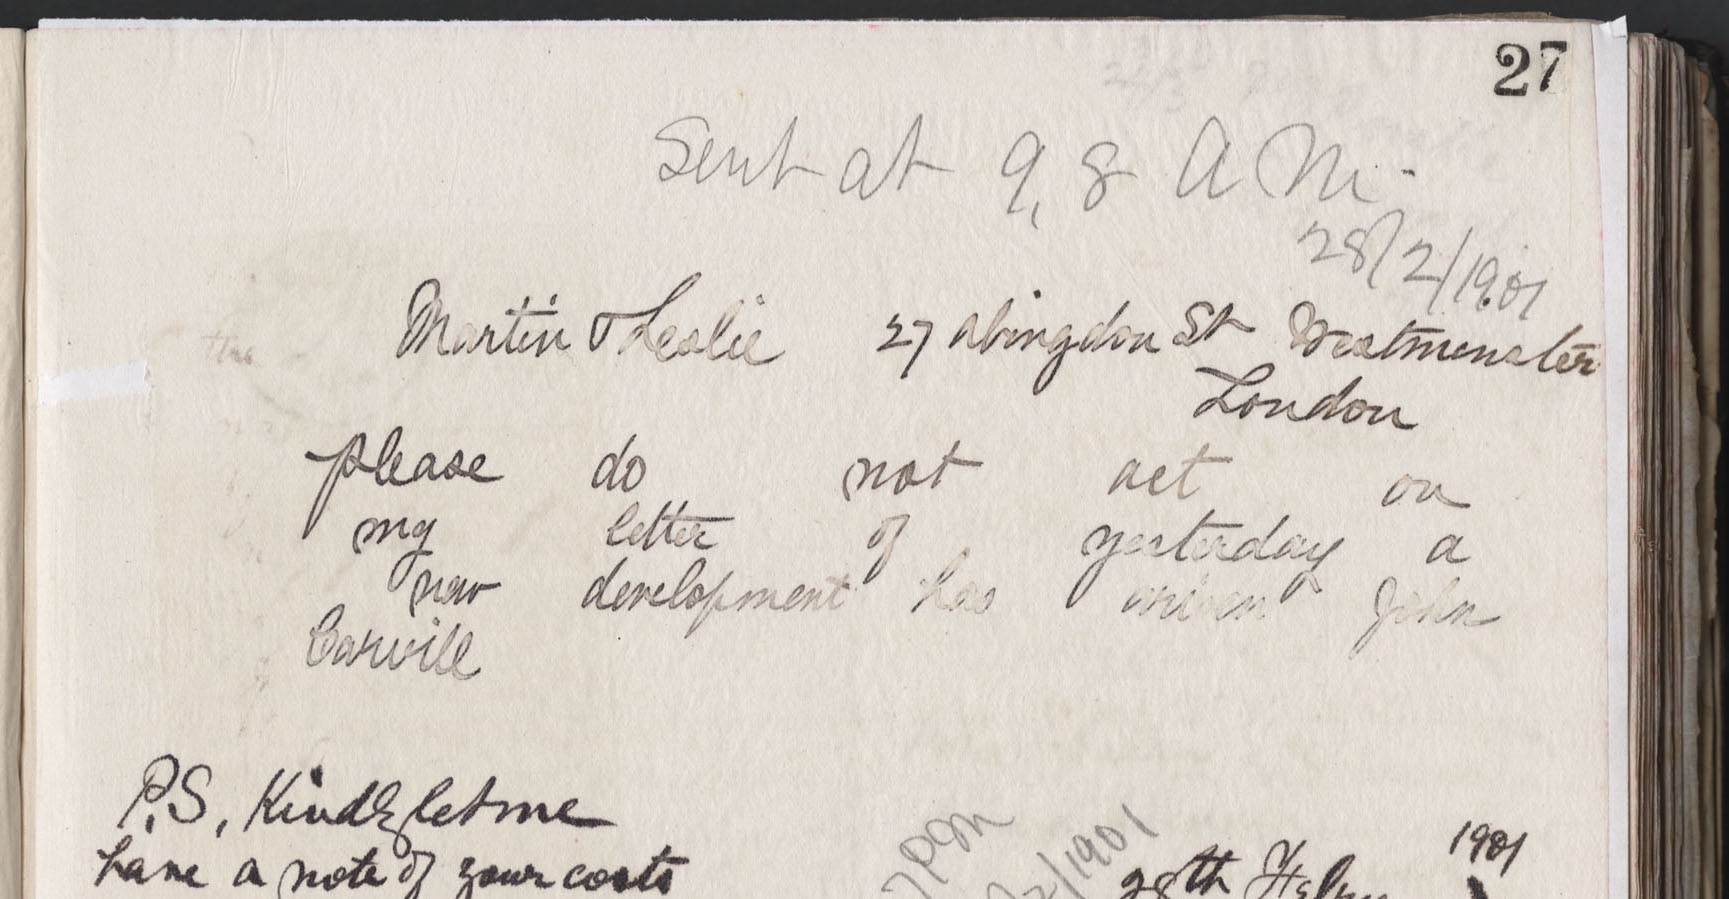 27
Sent at 9,8 AM.
28/2/1901
Martin & Leslie 27 Abingdon St Westminster
London
please do not act on
my letter of yesterday a
new development has arisen John
Carvill
P.S, Kindly let me
have a note of your costs
PM
/2/1901
28th Feby 1901